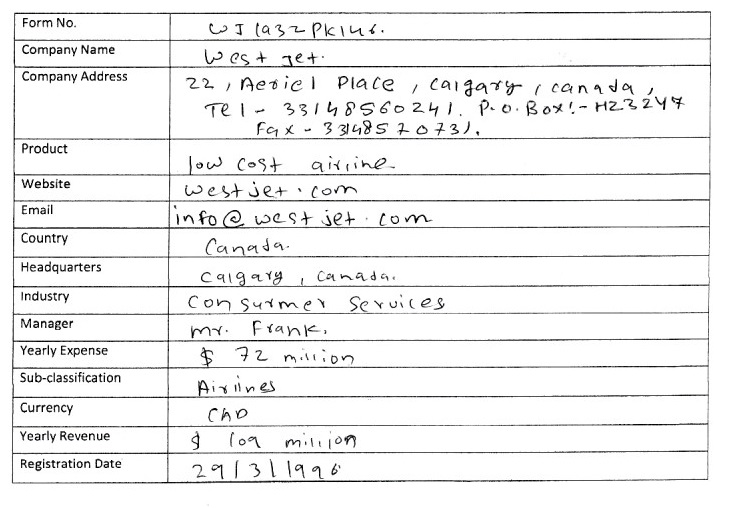 Form No. WJ1932PK146.
Company Name West Jet.
Company Address 22, Aeriel Place, Calgary, Canada,
Tel - 33148560241. P.O. Box:- HZ3244
Fax - 33148570731.
Product low cost airline
Website westjet.com
Email info@westjet.com
Country Canada.
Headquarters Calgary, Canada.
Industry Consurmer Services
Manager Mr. Frank.
Yearly Expense $ 72 million
Sub-classification Airlines
Currency CAD
Yearly Revenue $ 109 million
Registration Date 29/3/1996